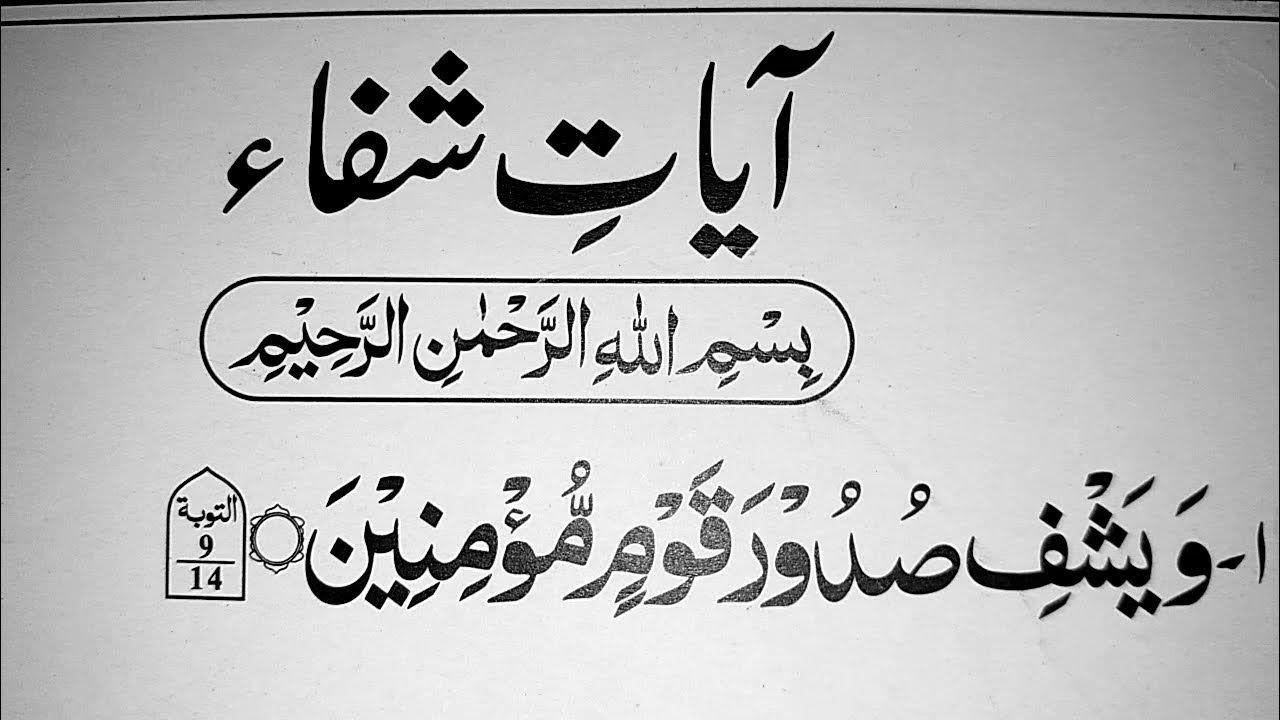 آیاتِ شفاء
بِسْمِ اللهِ الرَّحْمٰنِ الرَّحِيْمِ
۱- وَ يَشْفِ صُدُوْرَ قَوْمٍ مُّؤْمِنِيْنَ
التوبة
9
14